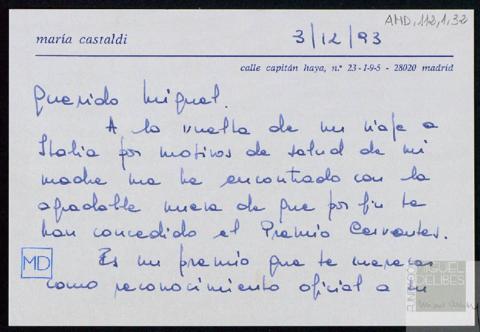 AMD,112,1,32
maría castaldi
3/12/93
calle capitán haya, n.º 23-1-9-5 - 28020 madrid
Querido Miguel.
A la vuelta de mi viaje a
Italia por motivos de salud de mi
madre me he encontrado con la
agradable nueva de que por fin te
han concedido el Premio Cervantes.
MD
Es un premio que te mereces
como reconocimiento oficial a tu
FUNDACIÓN
MIGUEL
DELIBES